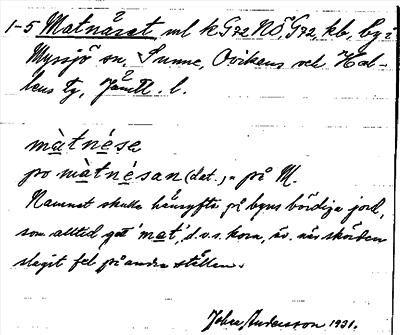 1-5 Matnäset ml k G72 NÖ, G72, kb, by i
Myssjö sn, Sunne, Ovikens och Hal-
lens tg, Jämtl. l.
màtnése
po màtnésan (dat.) = på M.
Namnet skulle hänsyfta på byns bördiga jord,
som alltid gett 'mat', d.v.s. korn, äv. när skörden
slagit fel på andra ställen.
John Andersson 1931.